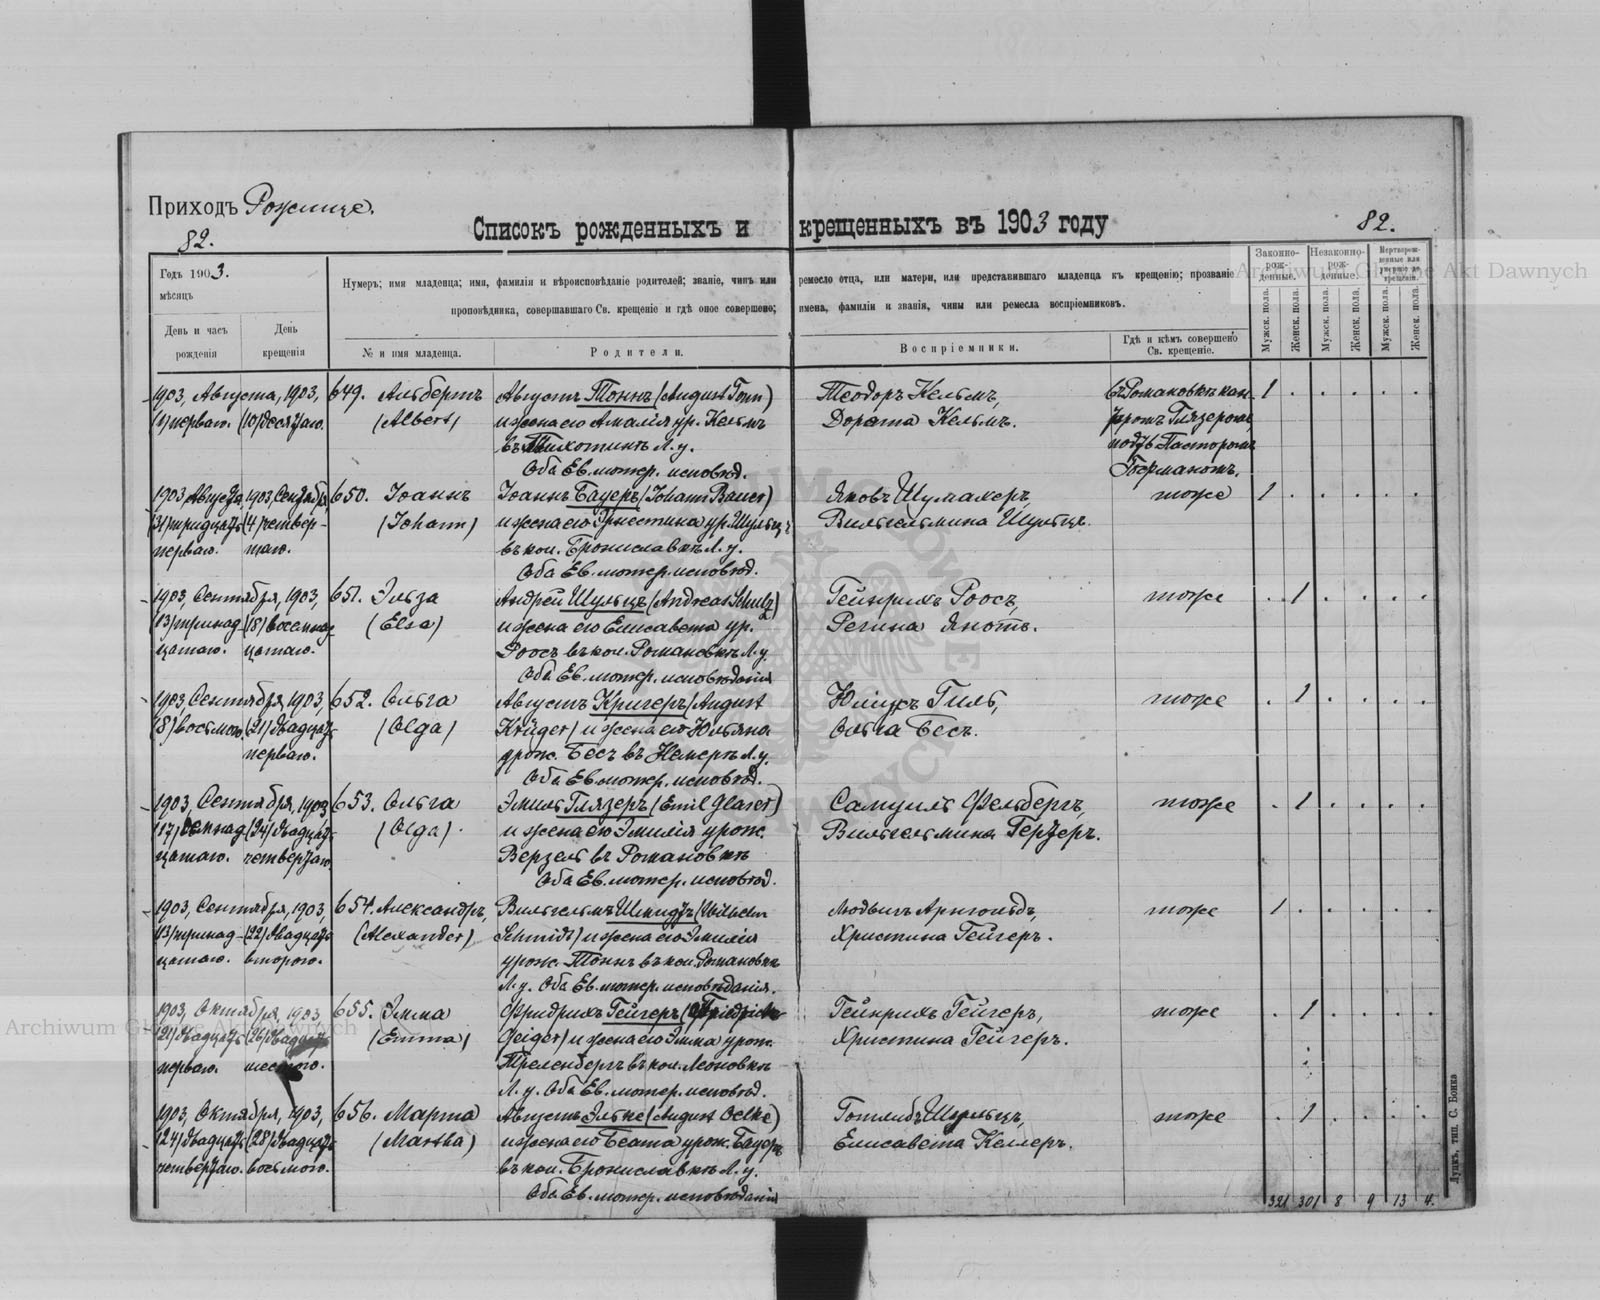 Приходъ Рожище.
82.
Списокъ рожденныхъ и крещенныхъ въ 1903 году
82.
Годъ 1903.
мѣсяцъ
День и часъ
рожденія
День
крещенія
Нумеръ; имя младенца; имя, фамилія и вѣроисповѣданіе родителей; званіе, чинъ или ремесло отца, или матери, или представившаго младенца къ крещенію; прозваніе
проповѣдника, совершавшаго Св. крещеніе и гдѣ оное совершено; имена, фамиліи и званія, чины или ремесла воспріемниковъ.
№ и имя младенца.
Родители.
Воспріемники.
Гдѣ и кѣмъ совершено
Св. крещеніе.
Законно-
рож-
денные.
Незаконно-
рож-
денные.
Мертворож-
денные или
умершіе до
крещенія.
Мужск. пола.
Женск. пола.
Мужск. пола.
Женск. пола.
Мужск. пола.
Женск. пола.
1903, Августа, 1903, 649. Альбертъ Августъ Тоннъ (August Tonn) Теодоръ Кельмъ, въ Романовкѣ кан- 1
(1) перваго. (10) десятаго. (Albert) и жена его Амалія ур. Кельмъ Дорота Кельмъ. торомъ Глязеромъ,
въ Л.у. подтв. Пасторомъ
Оба Ев. лютер. исповѣд. Германомъ.
1903 Августа, 1903, Сентября, 650. Іоаннъ Іоаннъ Бауеръ (Johann Bauer) Яковъ Шумахеръ, тоже 1
(31) тридцать (4) четвер- (Johann) и жена его Эрнестина ур. Шульцъ Вильгельмина Шульце.
перваго. таго. въ кол. Брониславкѣ Л.у.
Оба Ев. лютер. исповѣд.
1903, Сентября, 1903, 651. Эльза Андрей Шульцъ (Andreas Schulz) Гейнрихъ Роосъ, тоже 1
(13) тринад- (18) восемнад- (Elsa) и жена его Елисавета ур. Регина Янотъ.
цатаго. цатаго. Роосъ въ кол. Романовкѣ Л.у.
Оба Ев. лютер. исповѣданія
1903, Сентября, 1903, 652. Ольга Августъ Кригеръ (August Юліусъ Гиль, тоже 1
(8) восьмого. (21) двадцать (Olga) Krüger) и жена его Юльяна Ольга Бесъ.
перваго. урож. Бесъ въ Л.у.
Оба Ев. лютер. исповѣд.
1903, Сентября, 1903 653. Ольга Эмиль Глязеръ (Emil Glaser) Самуилъ Фельбергъ, тоже 1
(17) семнад- (24) двадцать (Olga). и жена его Эмилія урож. Вильгельмина Герцеръ.
цатаго. четвертаго. Верзель въ Романовкѣ
Оба Ев. лютер. исповѣд.
1903, Сентября, 1903, 654. Александръ, Вильгельмъ Шмидтъ (Wilhelm Людвигъ Арнгольдъ, тоже 1
(13) тринад- (22) двадцать (Alexander) Schmidt) и жена его Эмилія Христина Гейгеръ.
цатаго. второго. урож. Тоннъ въ кол. Романовкѣ
Л.у. Оба Ев. лютер. исповѣданія.
1903, Октября, 1903 655. Эмма Фридрихъ Гейгеръ (Friedrich Гейнрихъ Гейгеръ, тоже 1
(21) двадцать (26) двадцать (Emma) Geiger) и жена его Эмма урож. Христина Гейгеръ.
перваго. шестого. Треленбергъ въ кол. Леоновкѣ
Л.у. Оба Ев. лютер. исповѣд.
1903, Октября, 1903, 656. Марта Августъ Эльке (August Oelke) Готлибъ Шульцъ, тоже 1
(24) двадцать (28) двадцать (Martha) и жена его Беата урож. Бауеръ Елисавета Келлеръ.
четвертаго. восьмого. въ кол. Брониславкѣ Л.у.
Оба Ев. лютер. исповѣданія
321 301 8 9 13 4.
Луцкъ, тип. С. Бонка
Archiwum Główne Akt Dawnych
Archiwum Główne Akt Dawnych